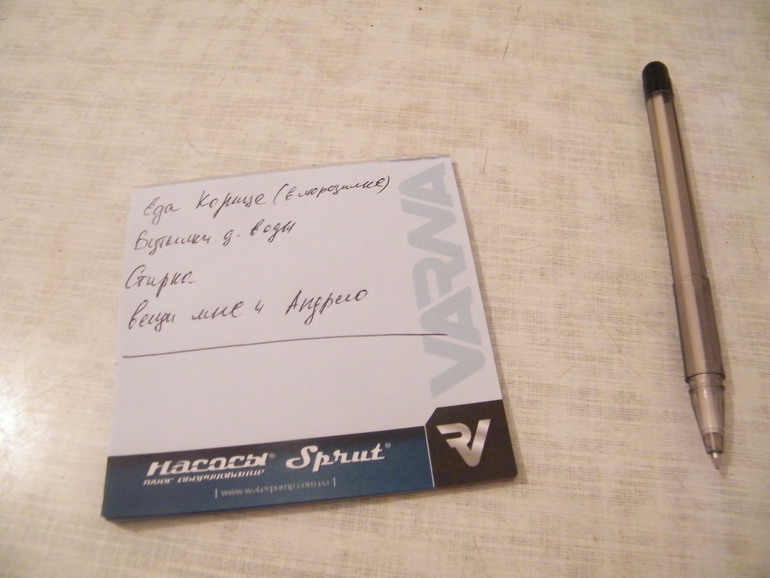 Еда Корице (в морозилке)
Бутылки д. воды
Стирка
вещи мне и Андрею
VARNA
Насосы® Sprut®
плюс оборудование
RV
| www.waterpump.com.ua |